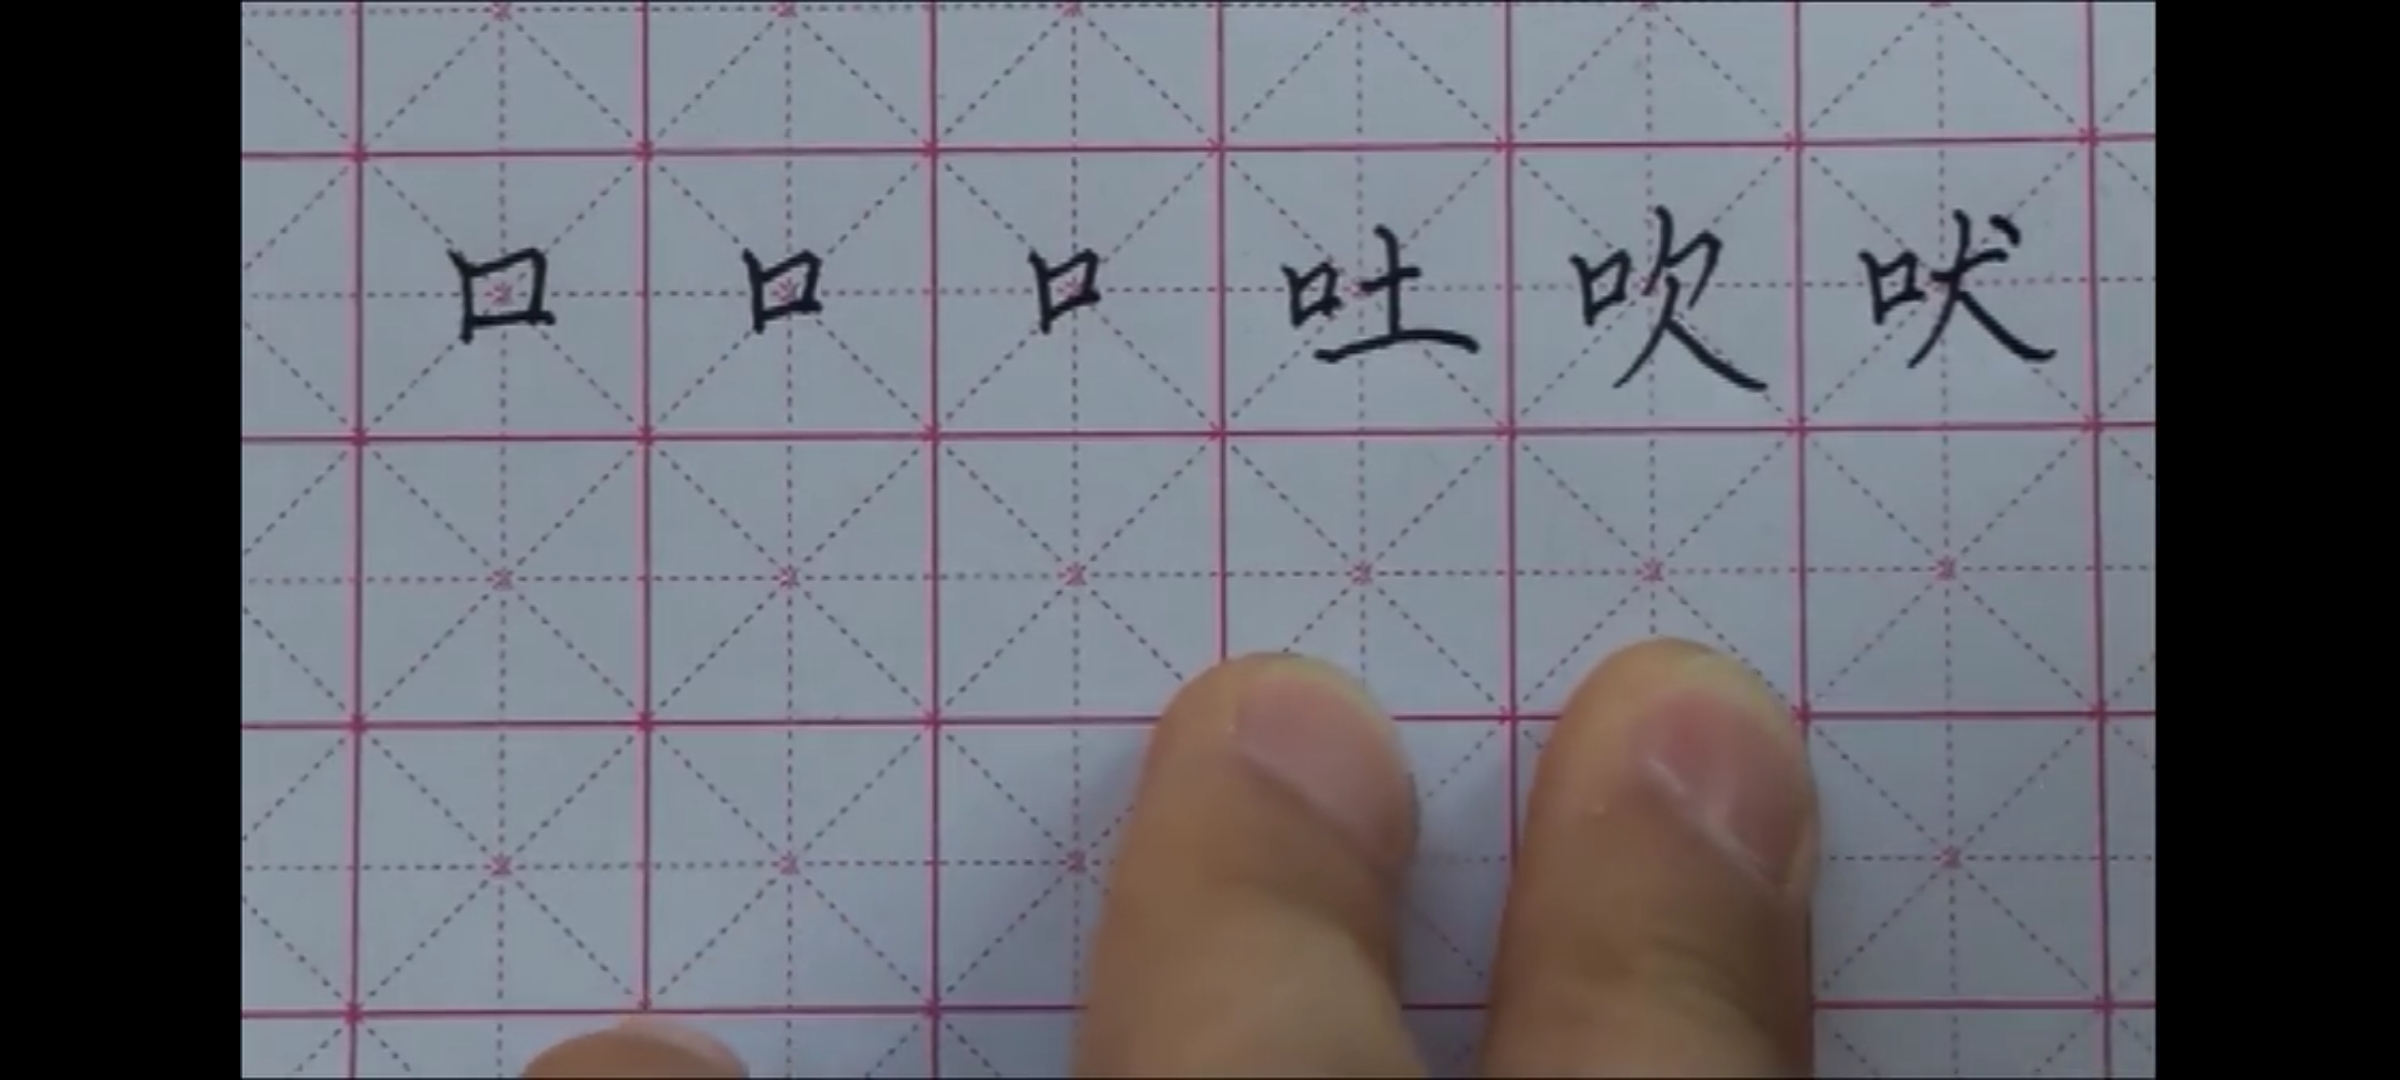 口口口吐吹吠